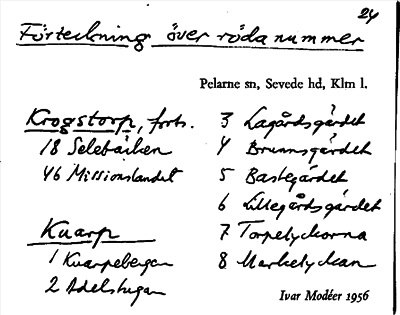 24
Förteckning över röda nummer
Pelarne sn, Sevede hd, Klm l.
Krogstorp, forts.
18 Selebacken
46 Missionslandet
Kvarp
1 Kvarpebergen
2 Adelstugan
3 Lagårdsgärdet
4 Brunnsgärdet
5 Bastegärdet
6 Lillegårdsgärdet
7 Torpelyckorna
8 Markelyckan
Ivar Modéer 1956